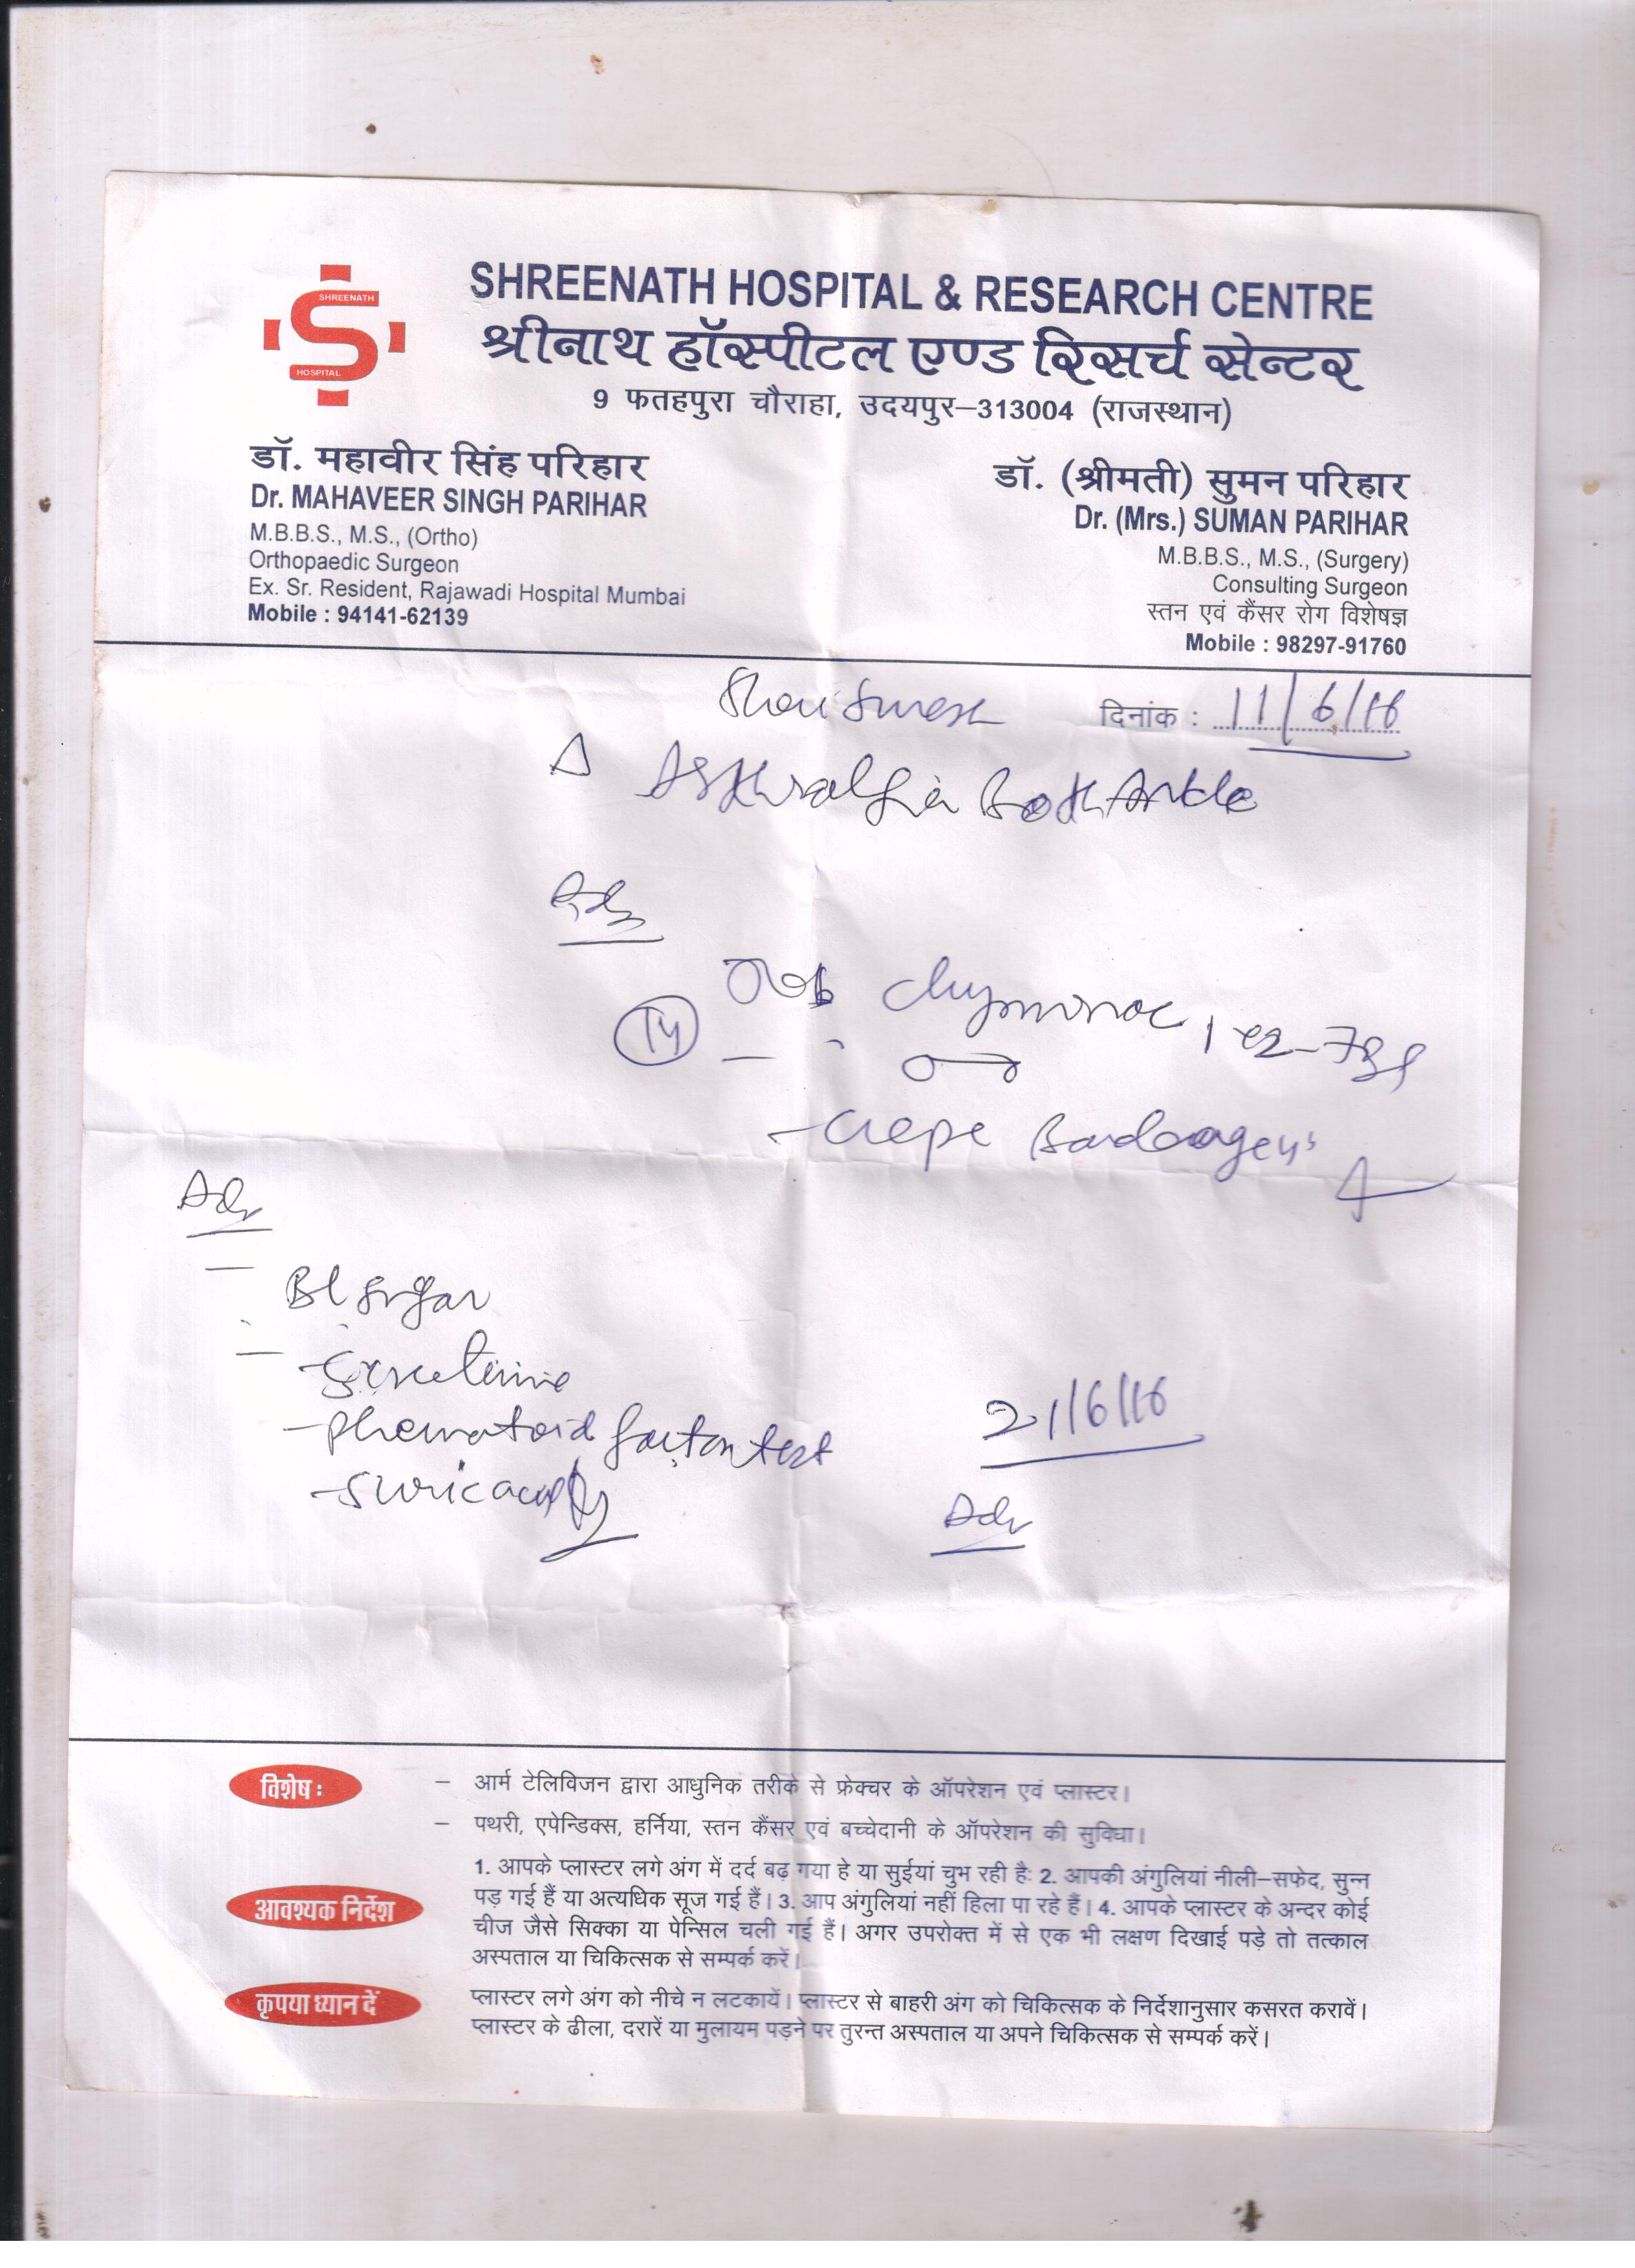 SHREENATH
HOSPITAL
SHREENATH HOSPITAL & RESEARCH CENTRE
श्रीनाथ हॉस्पीटल एण्ड रिसर्च सेन्टर
9 फतहपुरा चौराहा, उदयपुर–313004 (राजस्थान)
डॉ. महावीर सिंह परिहार
Dr. MAHAVEER SINGH PARIHAR
M.B.B.S., M.S., (Ortho)
Orthopaedic Surgeon
Ex. Sr. Resident, Rajawadi Hospital Mumbai
Mobile : 94141-62139
डॉ. (श्रीमती) सुमन परिहार
Dr. (Mrs.) SUMAN PARIHAR
M.B.B.S., M.S., (Surgery)
Consulting Surgeon
स्तन एवं कैंसर रोग विशेषज्ञ
Mobile : 98297-91760
दिनांक : 11/6/16
Δ Arthralgia Both Ankle
14
- Crepe
Adv
Bl sugar
- phematoid factor test
21/6/16
Adv
विशेष :
– आर्म टेलिविजन द्वारा आधुनिक तरीके से फ्रेक्चर के ऑपरेशन एवं प्लास्टर।
– पथरी, एपेन्डिक्स, हर्निया, स्तन कैंसर एवं बच्चेदानी के ऑपरेशन की सुविधा।
आवश्यक निर्देश
1. आपके प्लास्टर लगे अंग में दर्द बढ़ गया हे या सुईयां चुभ रही है: 2. आपकी अंगुलियां नीली–सफेद, सुन्न
पड़ गई हैं या अत्यधिक सूज गई हैं। 3. आप अंगुलियां नहीं हिला पा रहे हैं। 4. आपके प्लास्टर के अन्दर कोई
चीज जैसे सिक्का या पेन्सिल चली गई हैं। अगर उपरोक्त में से एक भी लक्षण दिखाई पड़े तो तत्काल
अस्पताल या चिकित्सक से सम्पर्क करें।
कृपया ध्यान दें
प्लास्टर लगे अंग को नीचे न लटकायें। प्लास्टर से बाहरी अंग को चिकित्सक के निर्देशानुसार कसरत करावें।
प्लास्टर के ढीला, दरारें या मुलायम पड़ने पर तुरन्त अस्पताल या अपने चिकित्सक से सम्पर्क करें।